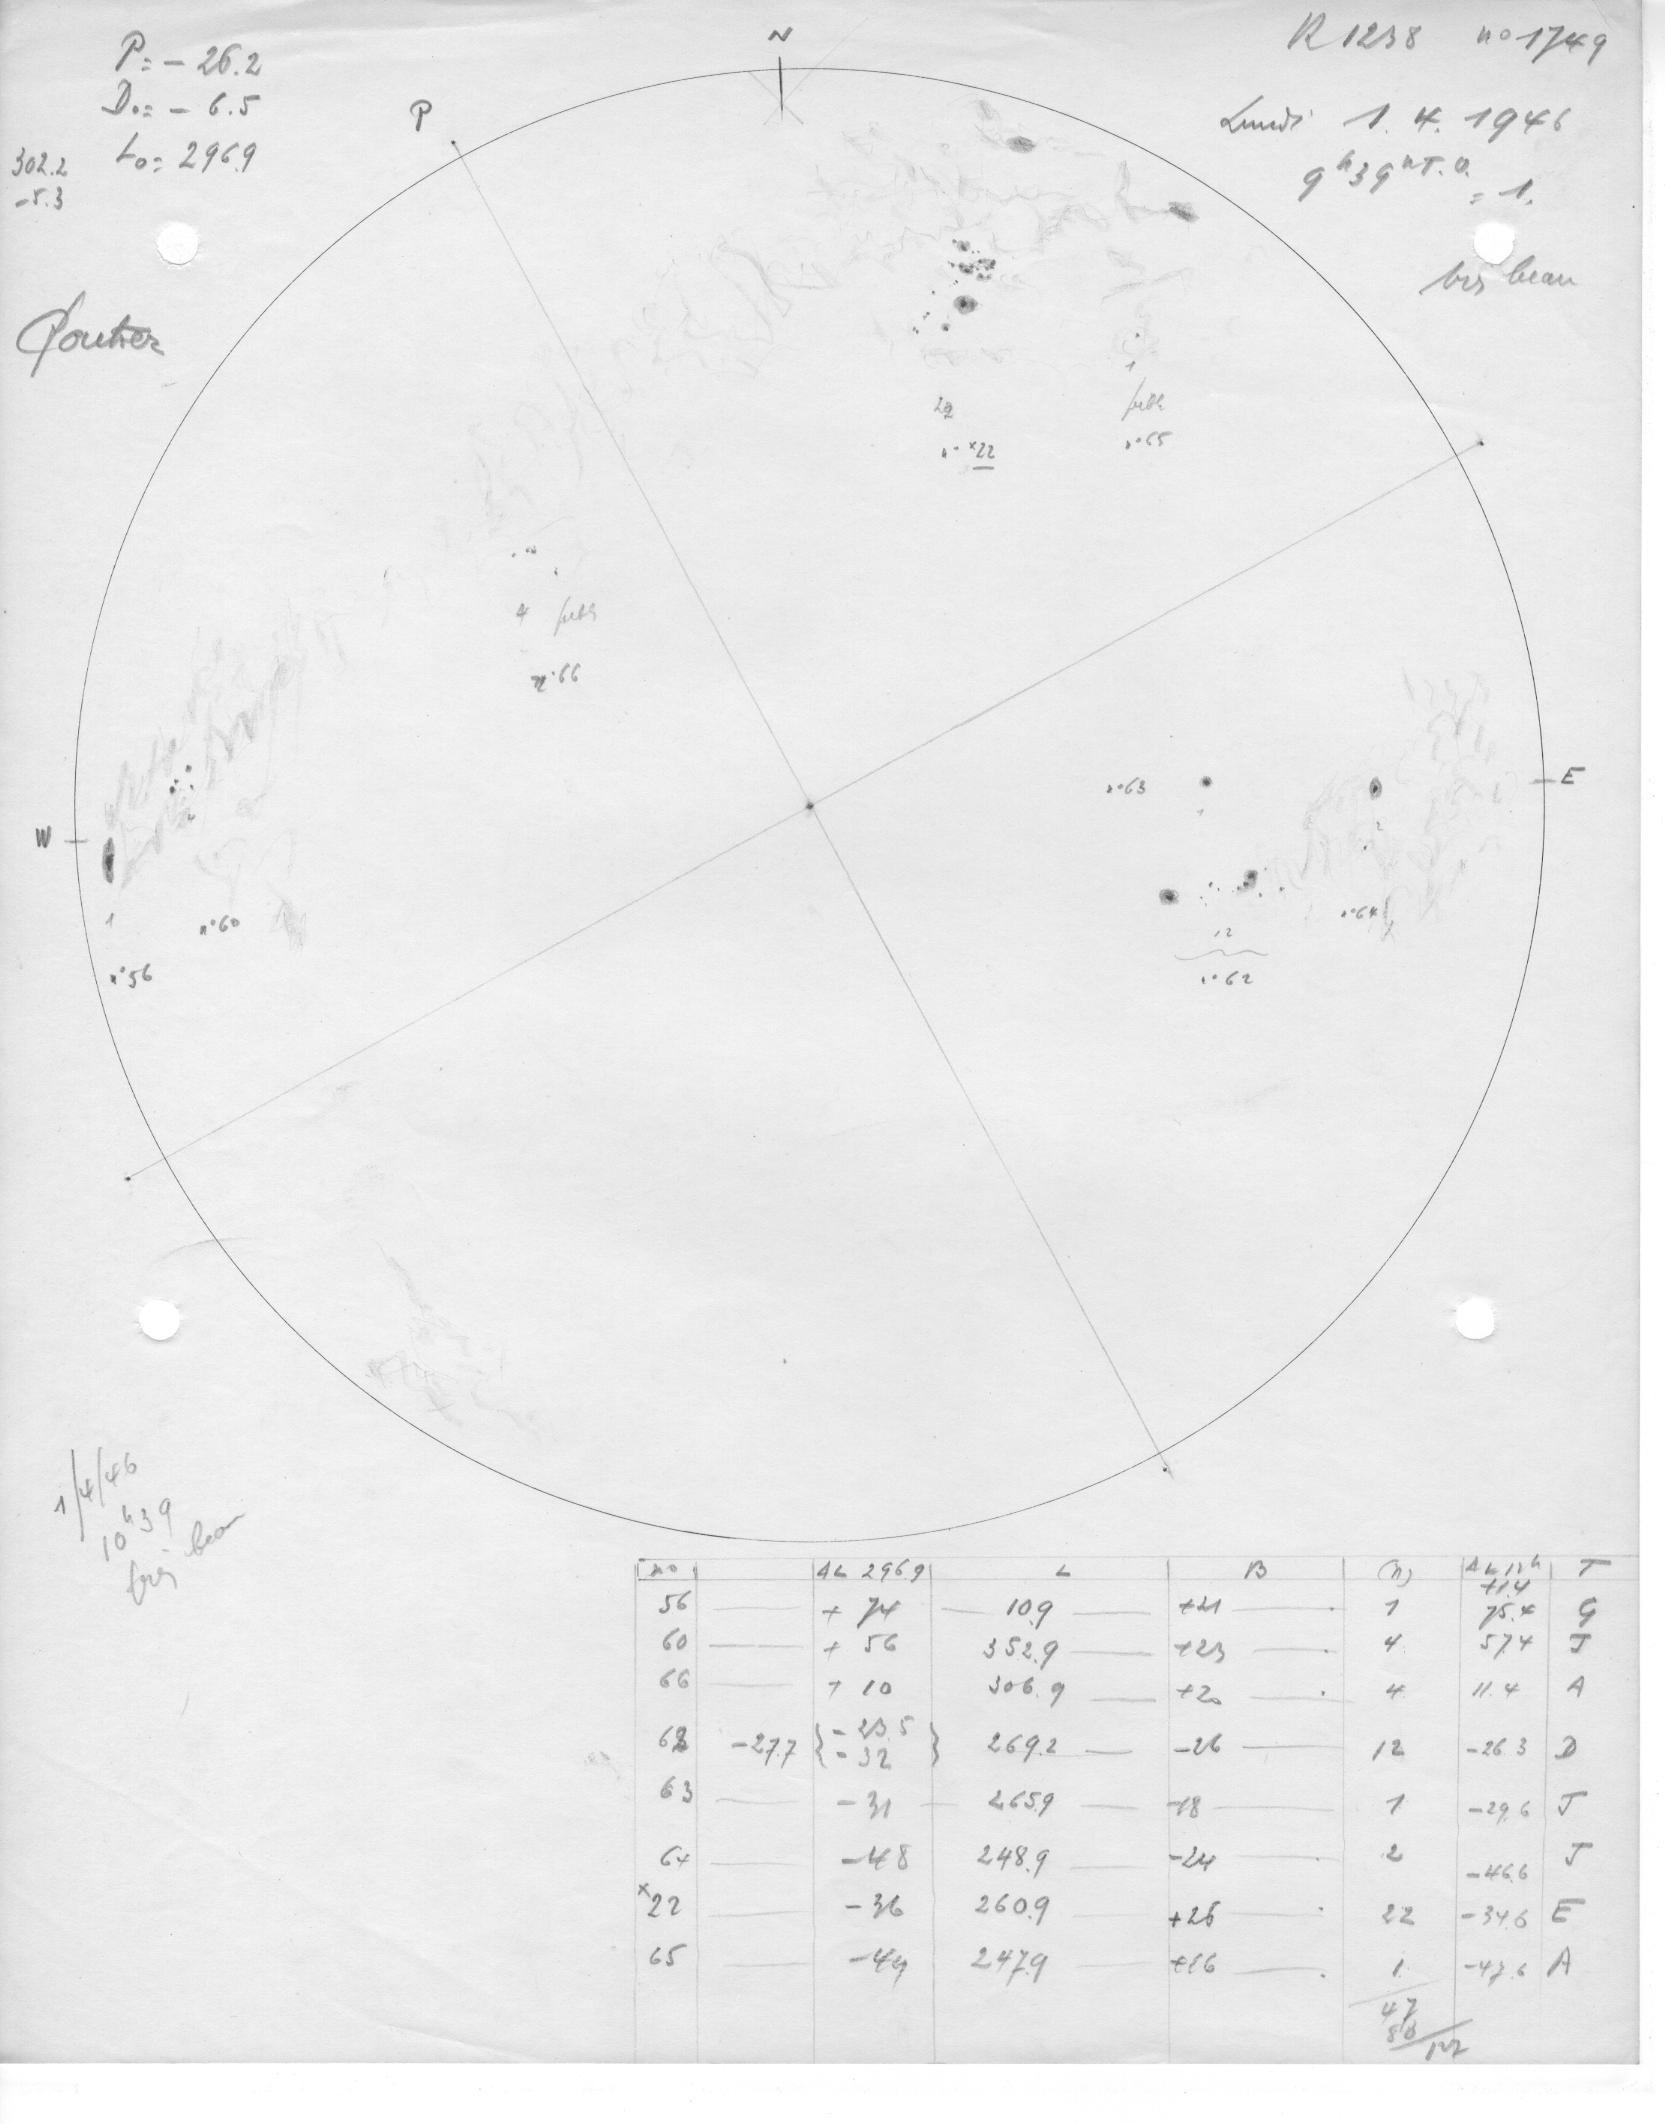 P = - 26.2
D₀ = - 6.5
L₀ = 296.9
302.2
-5.3
N
P
R 1238 no 1749
Lundi 1. 4. 1946
9h39 T.U.
= 1.
très beau
22
n° x22
1
faible
n°65
4 faible
n°66
W
E
n°63
1
2
n°64
12
n°62
n°60
1
n°56
1/4/46
10h39
très beau
no ΔL 296.9 L B (n) ΔL 12h T
+1.4
56 + 74 10.9 +21 1 75.4 G
60 + 56 352.9 +23 4 57.4 J
66 + 10 306.9 +20 4 11.4 A
62 -27.7 { - 23.5 - 32 } 269.2 -26 12 -26.3 D
63 -31 265.9 -18 1 -29.6 J
64 -48 248.9 -24 2 -46.6 J
x22 -36 260.9 +26 22 -34.6 E
65 -49 247.9 +16 1 -47.6 A
47
80
127